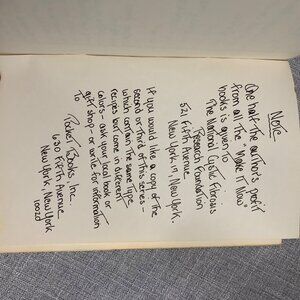 Note
One half the author's profit
from all the "Make It Now"
books is given to
The National Cystic Fibrosis
Research Foundation
521 Fifth Avenue
New York, New York.
If you would like a copy of the
second or third of this series -
which contain the same type
recipes but come in different
colors - ask your local book or
gift shop - or write for information
to
Pocket Books Inc.
630 Fifth Avenue
New York, New York
10020